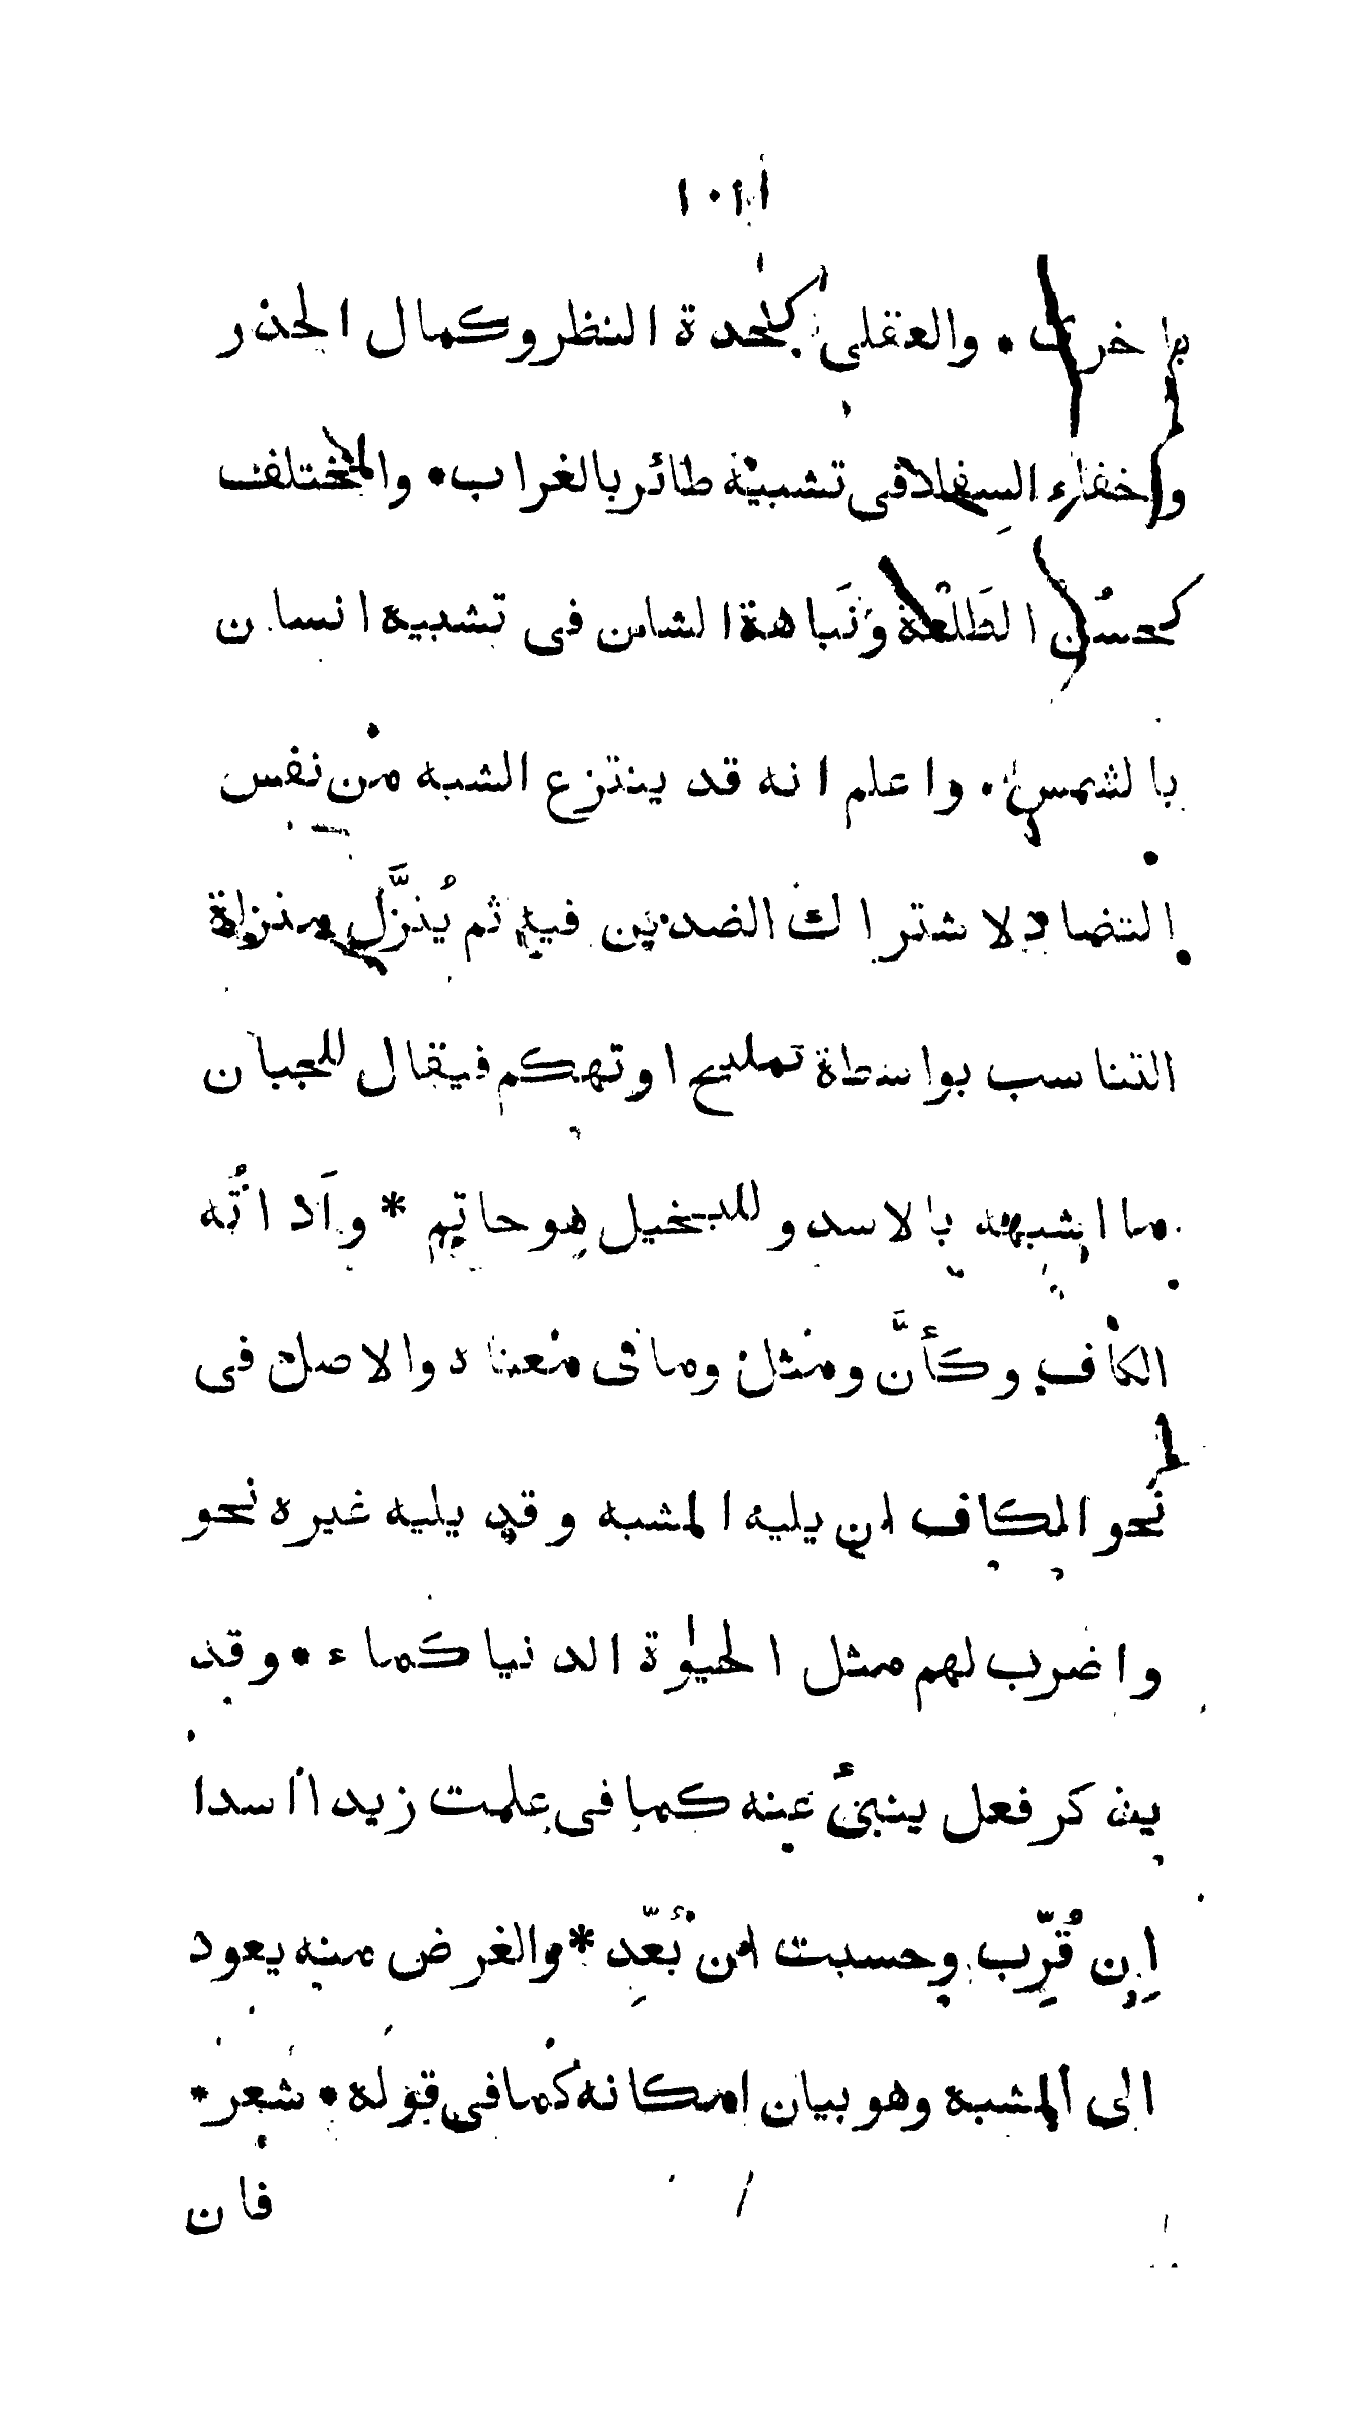 ١٠١
باخرى • والعقلى كحدة النظر وكمال الحذر
واخفاء السفاد فى تشبيه طائر بالغراب • والمختلف
كحسُن الطَلْعة ونَباهة الشان فى تشبيه انسان
بالشمس • واعلم انه قد ينتزع الشبه من نفس
التضاد لاشتراك الضدين فيه ثم يُنزَّل منزلة
التناسب بواسطة تمليح او تهكم فيقال للجبان
ما اشبهه بالاسد وللبخيل هو حاتم * واَداتُه
الكاف وكأنَّ ومثل وما فى معناه والاصل فى
نَحو الكاف ان يليه المشبه وقد يليه غيره نحو
واضرب لهم مثل الحيٰوة الدنيا كماء • وقد
يذكر فعل ينبئ عنه كما فى علمت زيدا اسدا
اِن قُرِّب وحسبت ان بُعِّد * والغرض منه يعود
الى المشبه وهو بيان امكانه كما فى قوله • شعر *
فان